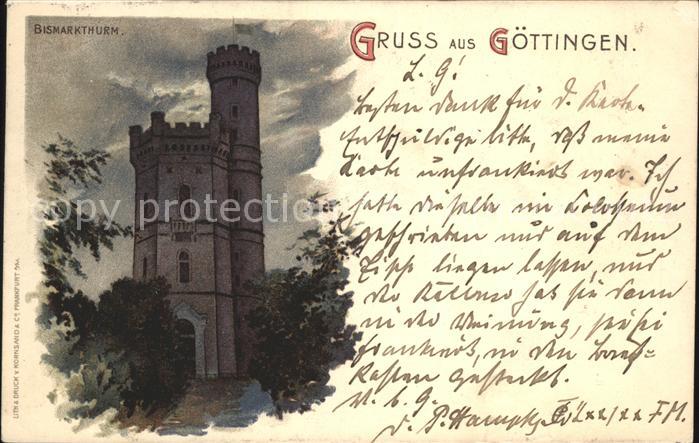 BISMARKTHURM.
GRUSS AUS GÖTTINGEN.
L. G!
besten Dank für d. Karte.
Entschuldige bitte, daß meine
Karte unfrankiert war. Ich
hatte dieselbe im Colosseum
geschrieben und auf dem
Tisch liegen lassen, und
der Kellner hat sie dann
in der Meinung, sie sei
frankiert, in den Brief-
kasten gesteckt.
M. b. G.
d.
LITH. & DRUCK V. KORNSAND & CO. FRANKFURT A/M.
copy protection